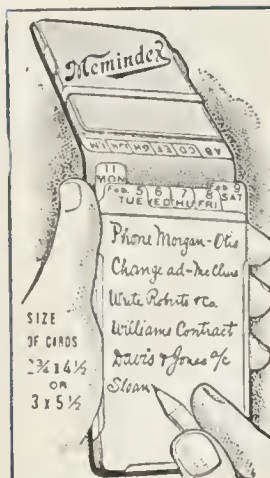 Memindex
AB CD EF GH IJK LM
11
MON
FEB. 5 6 7 8 FEB 9
TUE WED THU FRI SAT
Phone Morgan-Otis
Change ad-McClure
Write Roberts & Co.
Williams Contract
Davis & Jones a/c
Sloan
SIZE
OF CARDS
2¾ x 4½
OR
3 x 5½